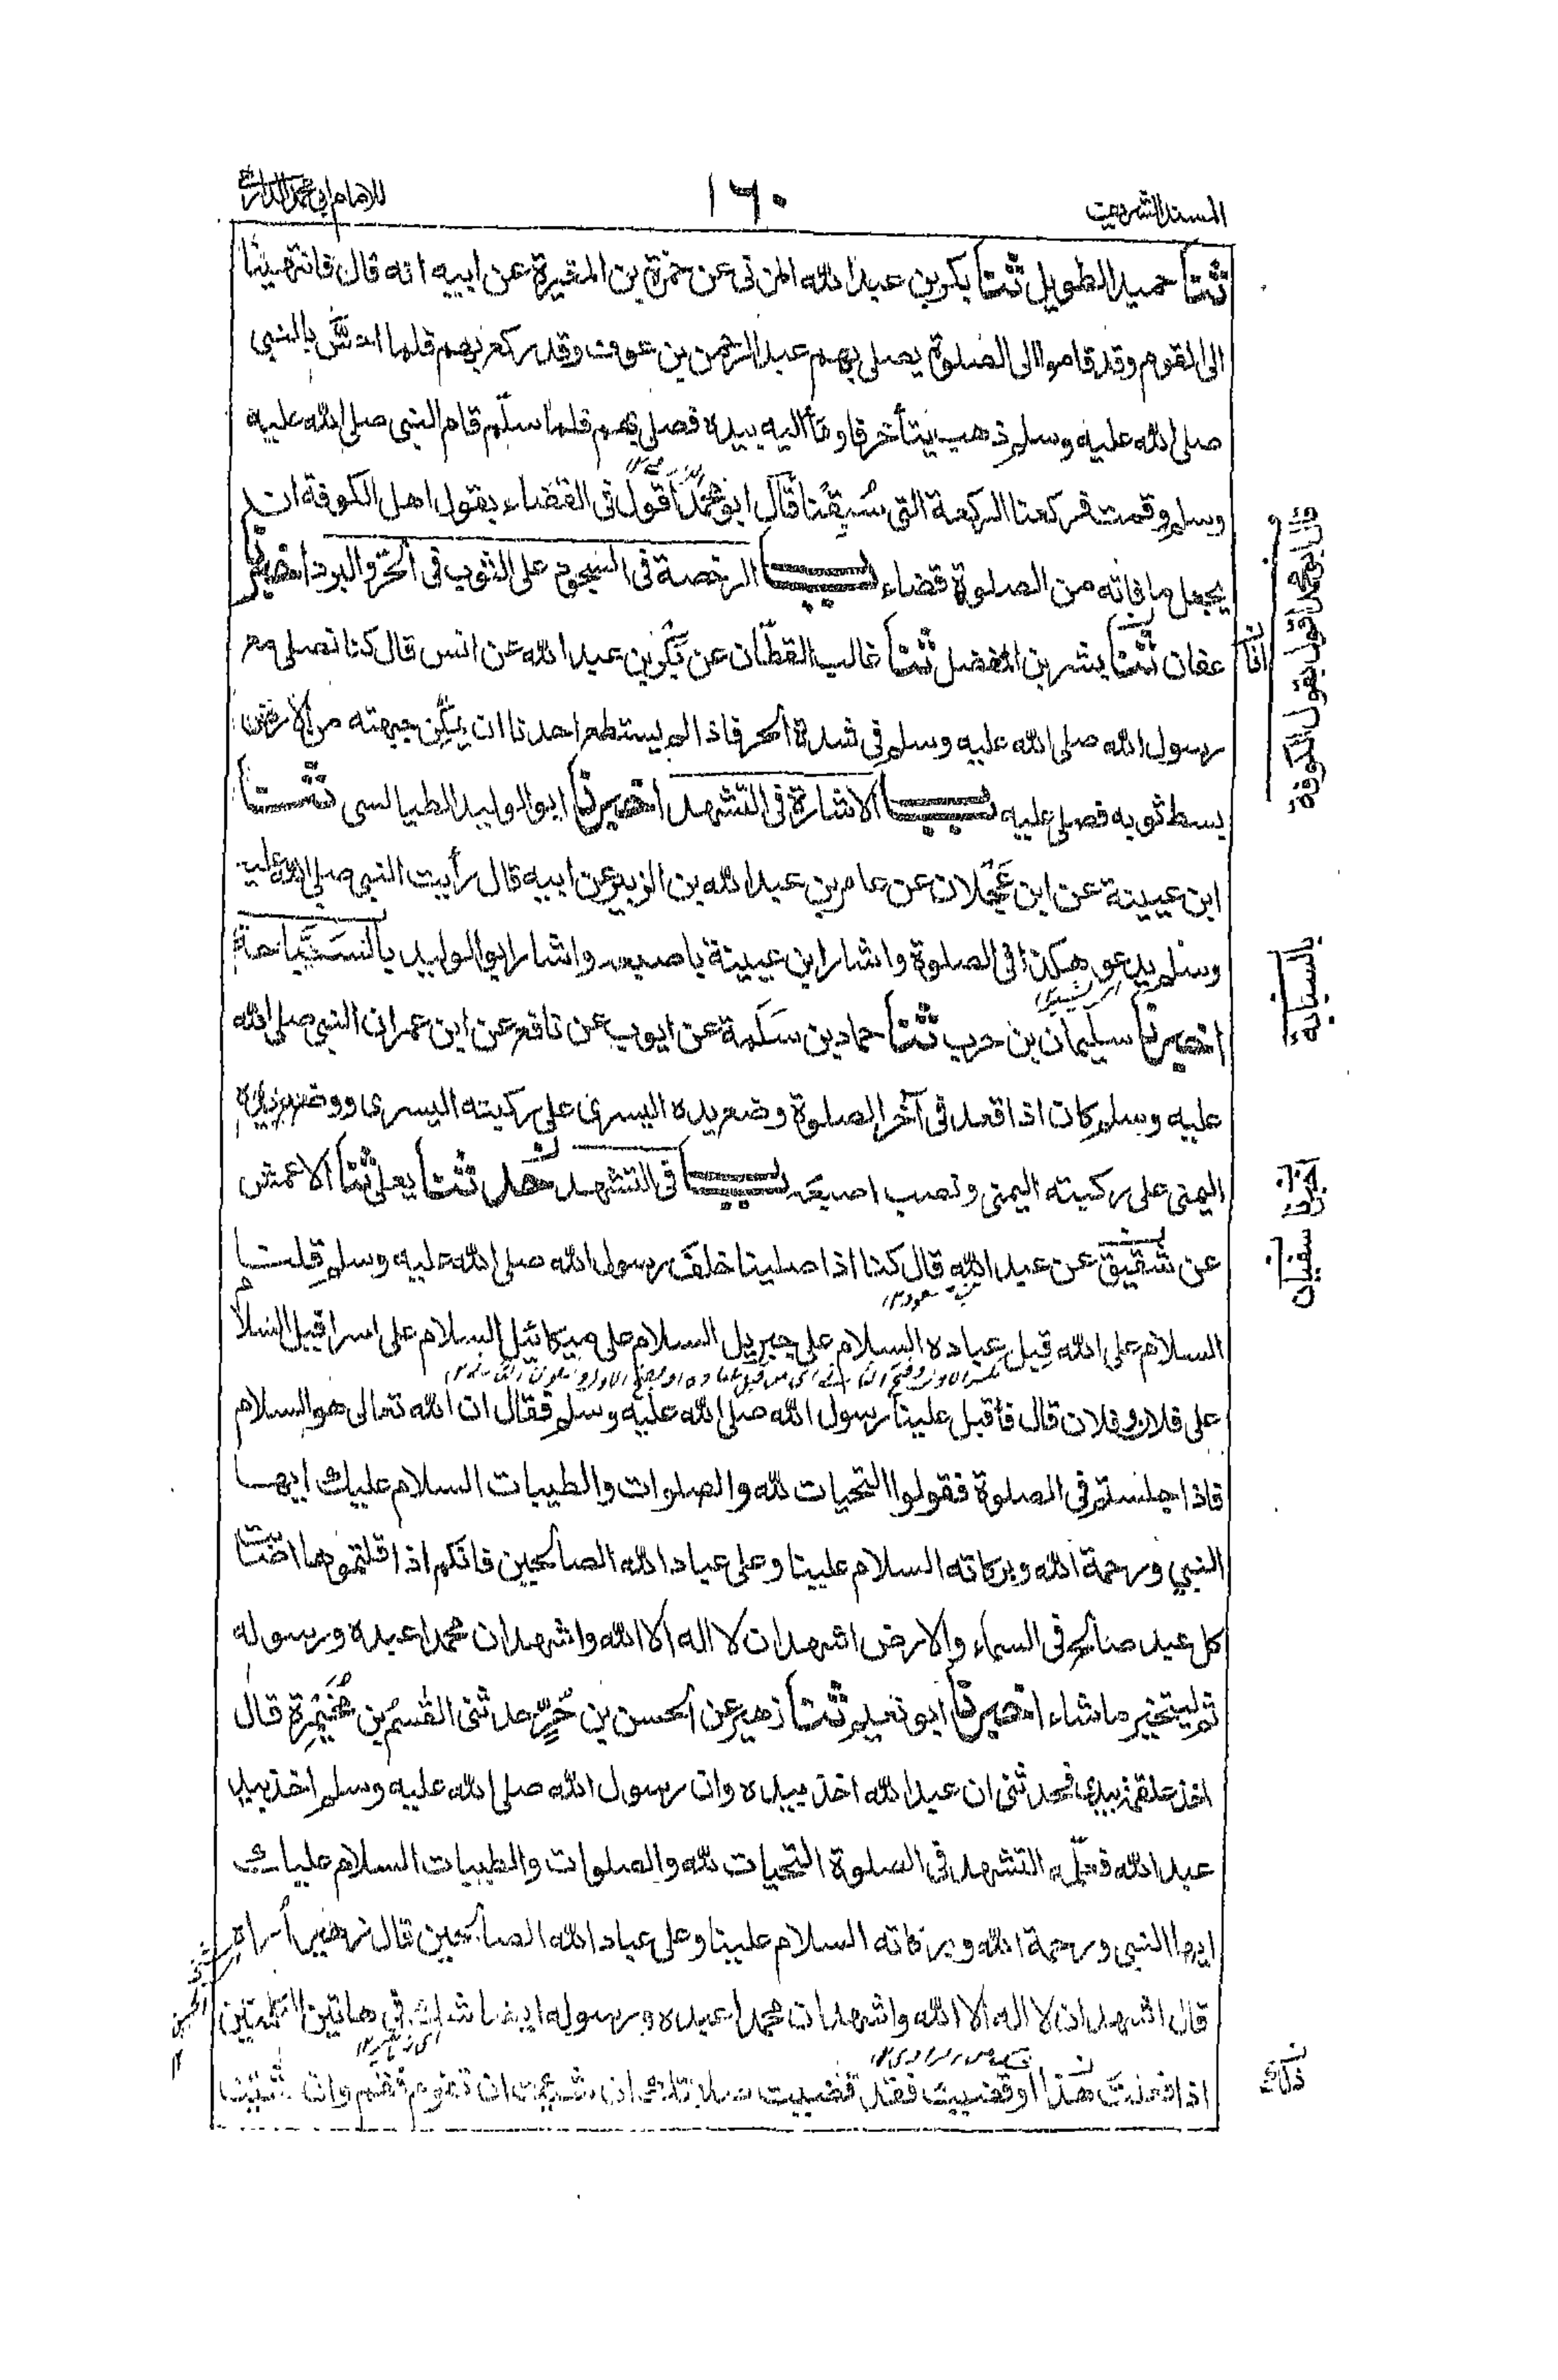 المسند الشريف
١٦٠
للامام ابي محمد الدارمي
ثنا حميد الطويل ثنا بكر بن عبد الله المزني عن حمزة بن المغيرة عن ابيه انه قال فانتهينا
الى القوم وقد قاموا الى الصلوة يصلي بهم عبد الرحمن بن عوف وقد ركع بهم فلما احس بالنبي
صلى الله عليه وسلم ذهب يتأخر فاومأ اليه بيده فصلى بهم فلما سلّم قام النبي صلى الله عليه
وسلم وقمت فركعنا الركعة التي سُبِقْنا قال ابو محمد اقول في القضاء بقول اهل الكوفة ان
يجعل ما فاته من الصلوة قضاء باب الرخصة في السجود على الثوب في الحر والبرد اخبرنا
عفان ثنا بشر بن المفضل ثنا غالب القطّان عن بكر بن عبد الله عن انس قال كنا نصلي مع
رسول الله صلى الله عليه وسلم في شدة الحر فاذا لم يستطع احدنا ان يمكّن جبهته من الارض
بسط ثوبه فصلى عليه باب الاشارة في التشهد اخبرنا ابو الوليد الطيالسي ثنا
ابن عيينة عن ابن عَجْلان عن عامر بن عبد الله بن الزبير عن ابيه قال رأيت النبي صلى الله عليه
وسلم يدعو هكذا في الصلوة واشار ابن عيينة باصبعه واشار ابو الوليد بالسَّبَّاحة
اخبرنا سليمان بن حرب ثنا حماد بن سَلَمة عن ايوب عن نافع عن ابن عمر ان النبي صلى الله
عليه وسلم كان اذا قعد في آخر الصلوة وضع يده اليسرى على ركبته اليسرى ووضع يده
اليمنى على ركبته اليمنى ونصب اصبعه باب في التشهد ثنا يعلى ثنا الاعمش
عن شقيق عن عبد الله قال كنا اذا صلينا خلف رسول الله صلى الله عليه وسلم قلنا
السلام على الله قِبل عباده السلام على جبريل السلام على ميكائيل السلام على اسرافيل السلام
على فلان وفلان قال فأقبل علينا رسول الله صلى الله عليه وسلم فقال ان الله تعالى هو السلام
فاذا جلستم في الصلوة فقولوا التحيات لله والصلوات والطيبات السلام عليك ايها
النبي ورحمة الله وبركاته السلام علينا وعلى عباد الله الصالحين فانكم اذا قلتموها اصابت
كل عبد صالح في السماء والارض اشهد ان لا اله الا الله واشهد ان محمدا عبده ورسوله
ثم ليتخير ما شاء اخبرنا ابو نعيم ثنا زهير عن الحسن بن حُرّ حدثني القسم بن مُخَيْمِرة قال
اخذ علقمة بيدي فحدثني ان عبد الله اخذ بيده وان رسول الله صلى الله عليه وسلم اخذ بيد
عبد الله فعلّمه التشهد في الصلوة التحيات لله والصلوات والطيبات السلام عليك
ايها النبي ورحمة الله وبركاته السلام علينا وعلى عباد الله الصالحين قال زهير أراه
قال اشهد ان لا اله الا الله واشهد ان محمدا عبده ورسوله ايضا شك في هاتين الكلمتين
اذا فعلت هذا او قضيت فقد قضيت صلاتك ان شئت ان تقوم فقم وان شئت
قال ابو محمد اقول بقول الكوفة
انا
بالسبابة
اخبرنا سفيان
ذلك